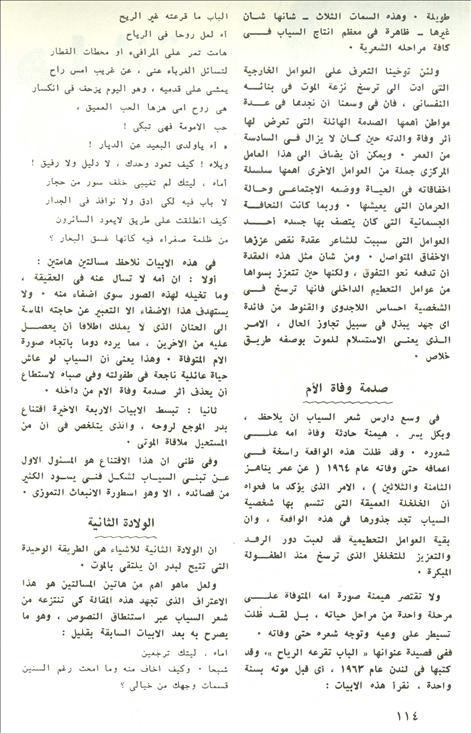 طويلة ٠ وهذه السمات الثلاث ــ شانها شان
غيرها ــ ظاهرة في معظم انتاج السياب في
كافة مراحله الشعرية ٠
ولئن توخينا التعرف على العوامل الخارجية
التي ادت الى ترسخ نزعة الموت في بنائه
النفساني ، فان في وسعنا أن نجدها في عدة
مواطن أهمها الصدمة الهائلة التي تعرض لها
أثر وفاة والدته حين كان لا يزال في السادسة
من العمر ٠ ويمكن أن يضاف الى هذا العامل
المركزي جملة من العوامل الاخرى أهمها سلسلة
اخفاقاته في الحياة ووضعه الاجتماعي وحالة
الحرمان التي يعيشها ٠ وربما كانت النحافة
الجسمانية التي كان يتصف بها جسده أحد
العوامل التي سببت للشاعر عقدة نقص عززها
الاخفاق المتواصل ٠ ومن شان مثل هذه العقدة
أن تدفعه نحو التفوق ، ولكنها حين تتعزز بسواها
من عوامل التحطيم الداخلي فانها ترسخ في
الشخصية احساس اللاجدوى والقنوط من فائدة
اي جهد يبذل في سبيل تجاوز الحال ، الامر
الذي يعني الاستسلام للموت بوصفه طريق
خلاص ٠
صدمة وفاة الأم
في وسع دارس شعر السياب ان يلاحظ ،
وبكل يسر ، هيمنة حادثة وفاة امه على
شعوره ٠ وقد ظلت هذه الواقعة راسخة في
اعماقه حتى وفاته عام ١٩٦٤ ( عن عمر يناهز
الثامنة والثلاثين ) ، الامر الذي يؤكد ما فحواه
أن الخلخلة العميقة التي تتسم بها شخصية
السياب تجد جذورها في هذه الواقعة ، وان
بقية العوامل التحطيمية قد لعبت دور الرفد
والتعزيز للتخلخل الذي ترسخ منذ الطفولة
المبكرة ٠
ولا تقتصر هيمنة صورة امه المتوفاة على
مرحلة واحدة من مراحل حياته ، بل لقد ظلت
تسيطر على وعيه وتوجه شعره حتى وفاته ٠
ففي قصيدة عنوانها « الباب تقرعه الرياح » وقد
كتبها في لندن عام ١٩٦٣ ، أي قبل موته بسنة
واحدة ، نقرأ هذه الابيات :
الباب ما قرعته غير الريح
آه لعل روحا في الرياح
هامت تمر على المرافىء او محطات القطار
لتسائل الغرباء عني ، عن غريب امس راح
يمشي على قدميه ، وهو اليوم يزحف في انكسار
هي روح امي هزها الحب العميق ،
حب الامومة فهي تبكي !
« آه ياولدي البعيد عن الديار !
ويلاه ! كيف تعود وحدك ، لا دليل ولا رفيق !
أماه ، ليتك لم تغيبي خلف سور من حجار
لا باب فيه لكي ادق ولا نوافذ في الجدار
كيف انطلقت على طريق لايعود السائرون
من ظلمة صفراء فيه كأنها غسق البحار ؟
في هذه الابيات نلاحظ مسالتين هامتين :
أولا : ان أمه لا تسال عنه في الحقيقة ،
وما تخيله لهذه الصور سوى اضفاء منه ٠ ولا
يستهدف هذا الاضفاء الا التعبير عن حاجته الماسة
الى الحنان الذي لا يملك اطلاقا أن يحصل
عليه من الاخرين ، مما يرده دوما باتجاه صورة
الام المتوفاة ٠ وهذا يعني أن السياب لو عاش
حياة عائلية ناجعة في طفولته وفي صباه لاستطاع
أن يحذف أثر صدمة وفاة الام من داخله ٠
ثانيا : تبسط الابيات الاربعة الاخيرة اقتناع
بدر الموجع لروحه ، والذي يتلخص في أن من
المستحيل ملاقاة الموتى ٠
وفي ظني ان هذا الاقتناع هو المسئول الاول
عن تبني السياب لشكل فني يسود الكثير
من قصائده ، الا وهو اسطورة الانبعاث التموزي ٠
الولادة الثانية
ان الولادة الثانية للاشياء هي الطريقة الوحيدة
التي تتيح لبدر ان يلتقي بالموت ٠
ولعل ماهو اهم من هاتين المسالتين هو هذا
الاعتراف الذي تجهد هذه المقالة كي تنتزعه من
شعر السياب عبر استنطاق النصوص ، وهو ما
يصرح به بعد الابيات السابقة بقليل :
اماه ٠ ليتك ترجعين
شبحا ٠ وكيف اخاف منه وما امحت رغم السنين
قسمات وجهك من خيالي ؟
١١٤